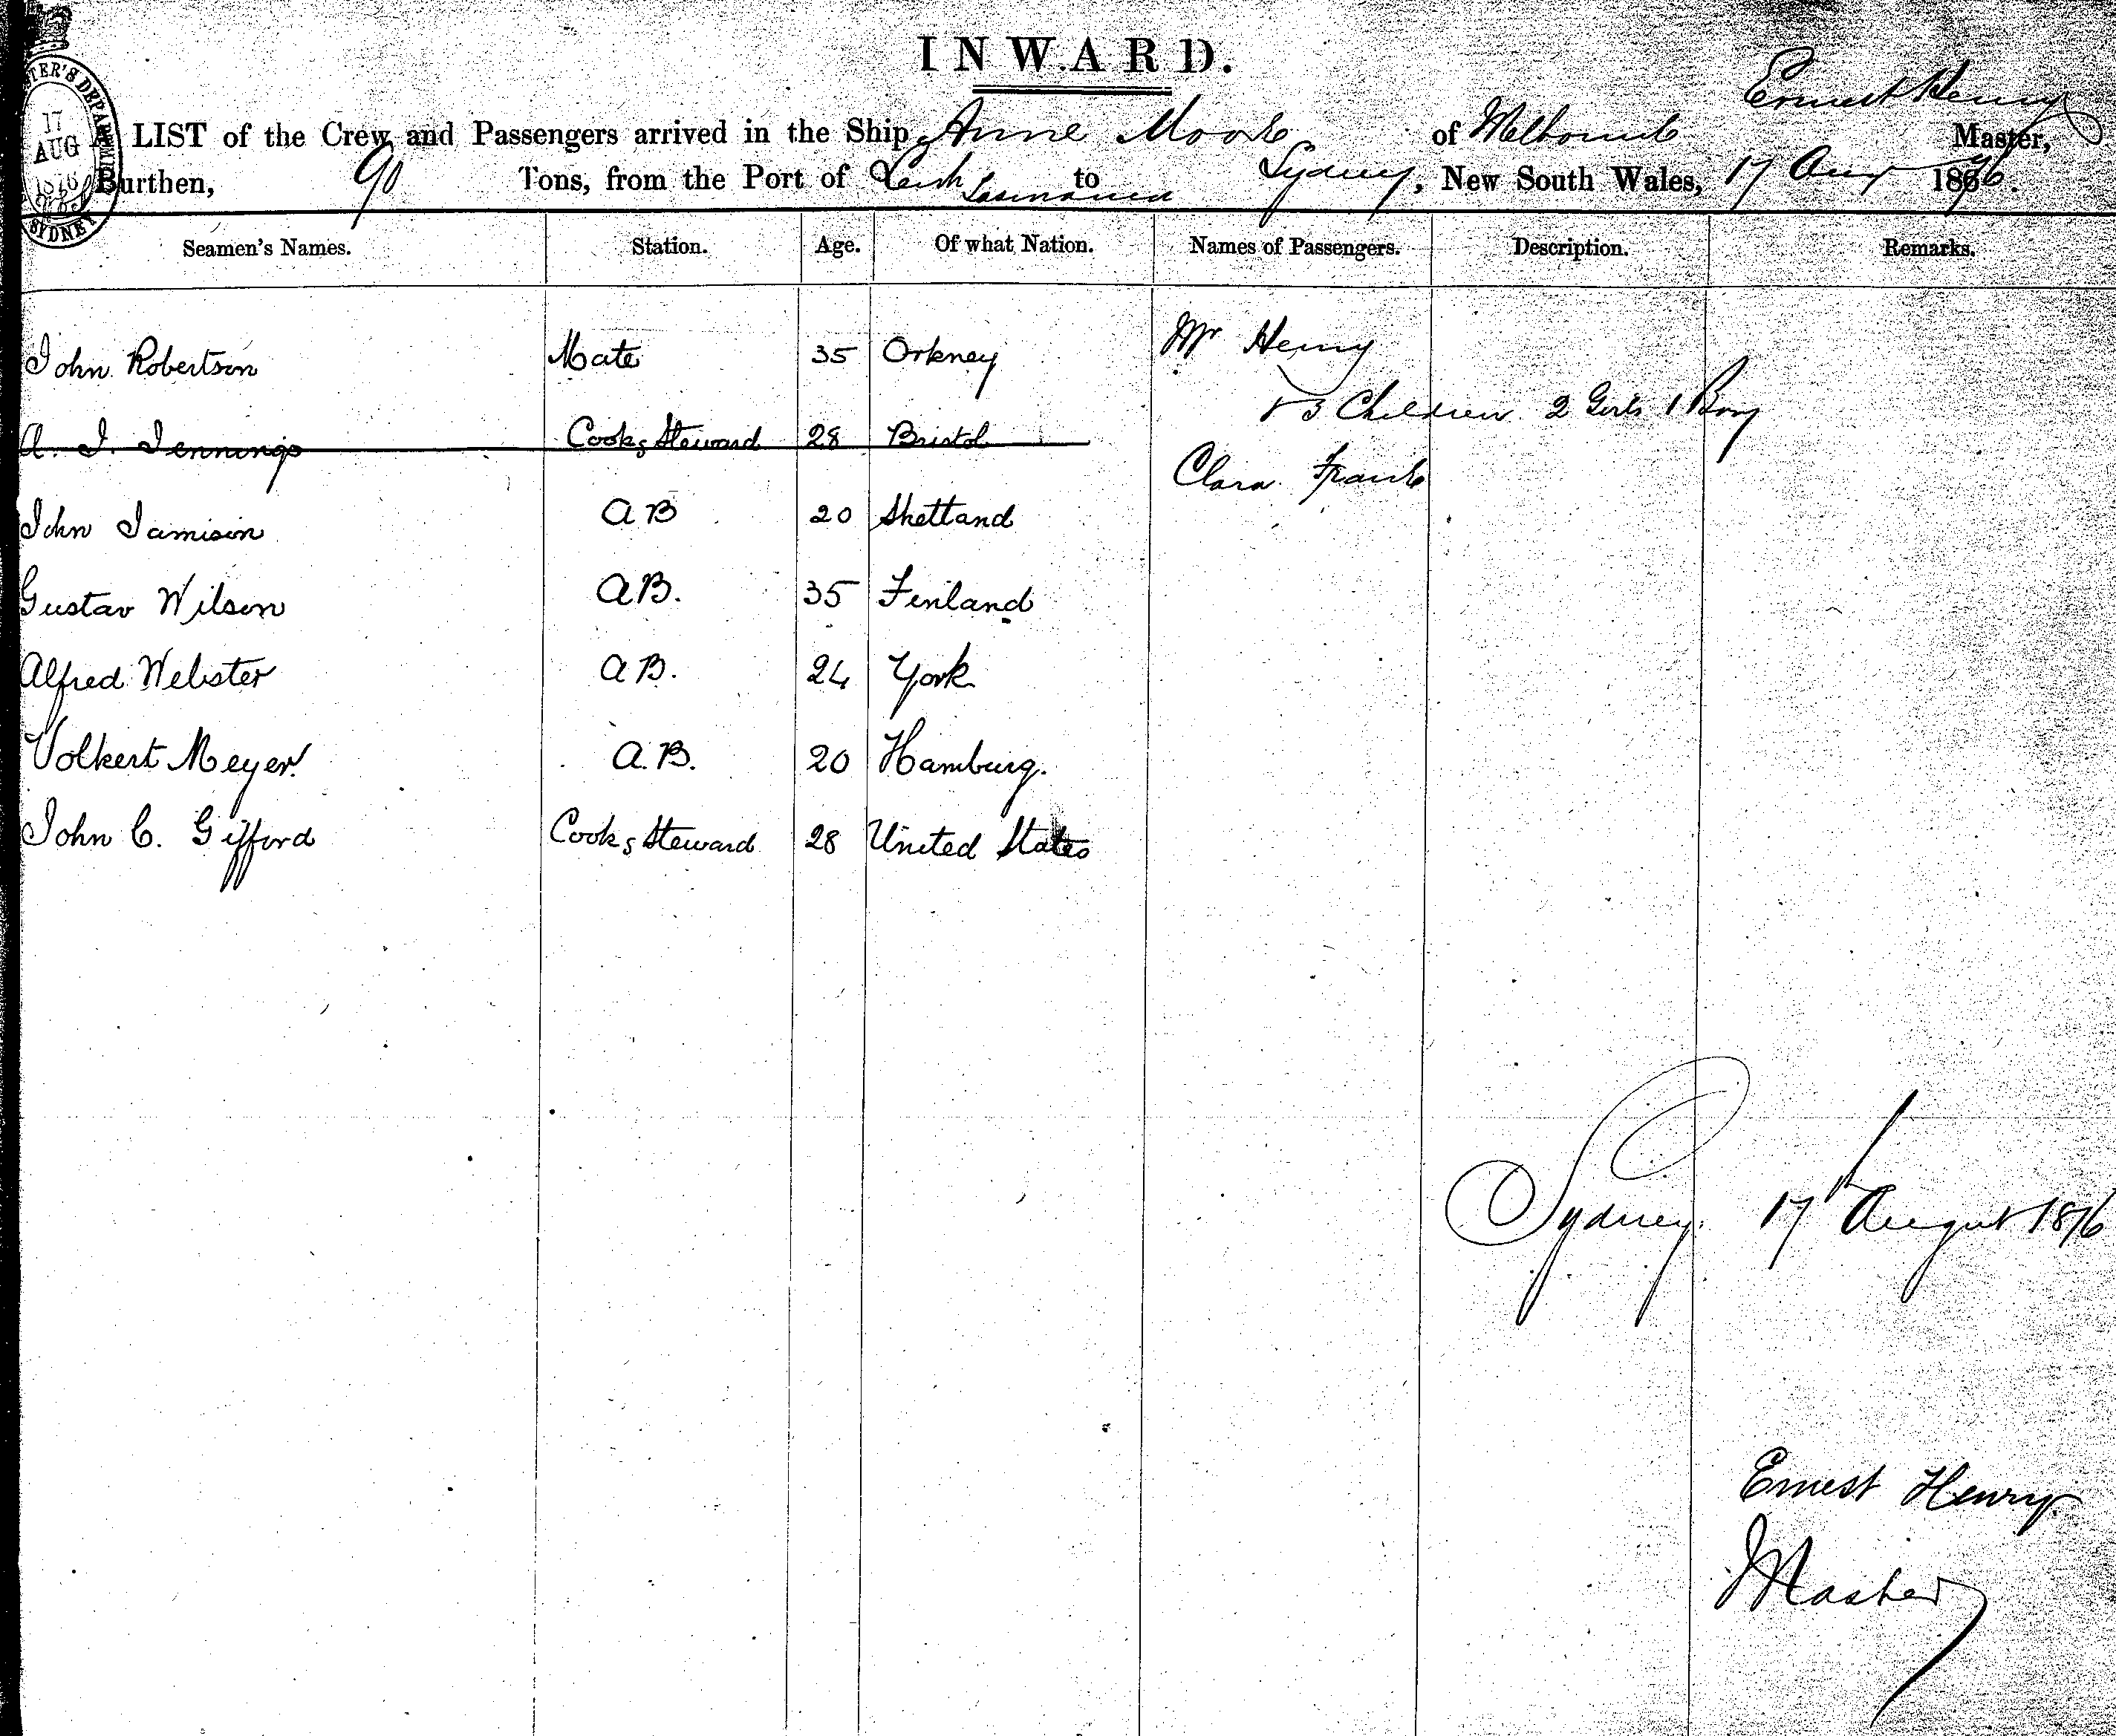 INWARD.
Ernest Henry
LIST of the Crew and Passengers arrived in the Ship Anne Moore of Melbourne Master,
Burthen, 90 Tons, from the Port of Leith Tasmania to Sydney, New South Wales, 17 Aug 1876.
17
AUG
1876
SYDNEY
Seamen's Names. Station. Age. Of what Nation. Names of Passengers. Description. Remarks.
John Robertson Mate 35 Orkney Mr Henry
& 3 Children 2 Girls 1 Boy
A. J. Jennings Cook & Steward 28 Bristol
Clara Frank
John Jamison AB 20 Shetland
Gustav Wilson AB. 35 Finland
Alfred Webster AB. 24 York
Volkert Meyer. A.B. 20 Hamburg.
John C. Gifford Cook & Steward 28 United States
Sydney. 17 August 1876
Ernest Henry
Master